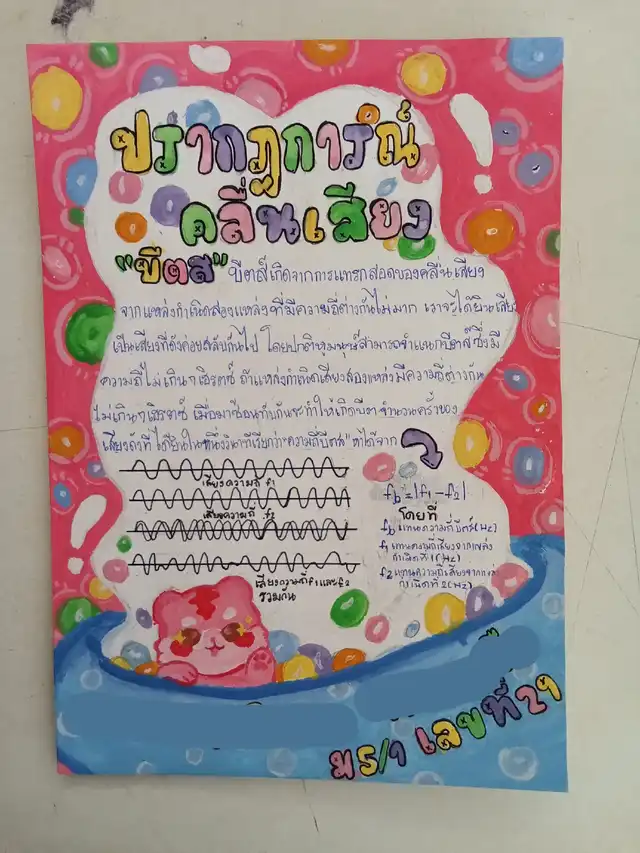 ปรากฏการณ์
คลื่นเสียง
"บีตส์" บีตส์เกิดจากการแทรกสอดของคลื่นเสียง
จากแหล่งกำเนิดสองแหล่งที่มีความถี่ต่างกันไม่มาก เราจะได้ยินเสียง
เป็นเสียงที่ดังค่อยสลับกันไป โดยปกติหูมนุษย์สามารถจำแนกบีตส์ซึ่งมี
ความถี่ไม่เกิน ๗ เฮิรตซ์ ถ้าแหล่งกำเนิดเสียงสองแหล่งมีความถี่ต่างกัน
ไม่เกิน ๗ เฮิรตซ์ เมื่อมาซ้อนทับกันจะทำให้เกิดบีตส์ จำนวนครั้งของ
เสียงดังที่ได้ยินในหนึ่งวินาทีเรียกว่า "ความถี่บีตส์" หาได้จาก
เสียงความถี่ f1
เสียงความถี่ f2
เสียงความถี่ f1 และ f2
รวมกัน
fb = |f1 - f2|
โดยที่
fb แทนความถี่บีตส์ (Hz)
f1 แทนความถี่เสียงจากแหล่ง
กำเนิดที่ 1 (Hz)
f2 แทนความถี่เสียงจากแหล่ง
กำเนิดที่ 2 (Hz)
ม 5/1 เลขที่ 29